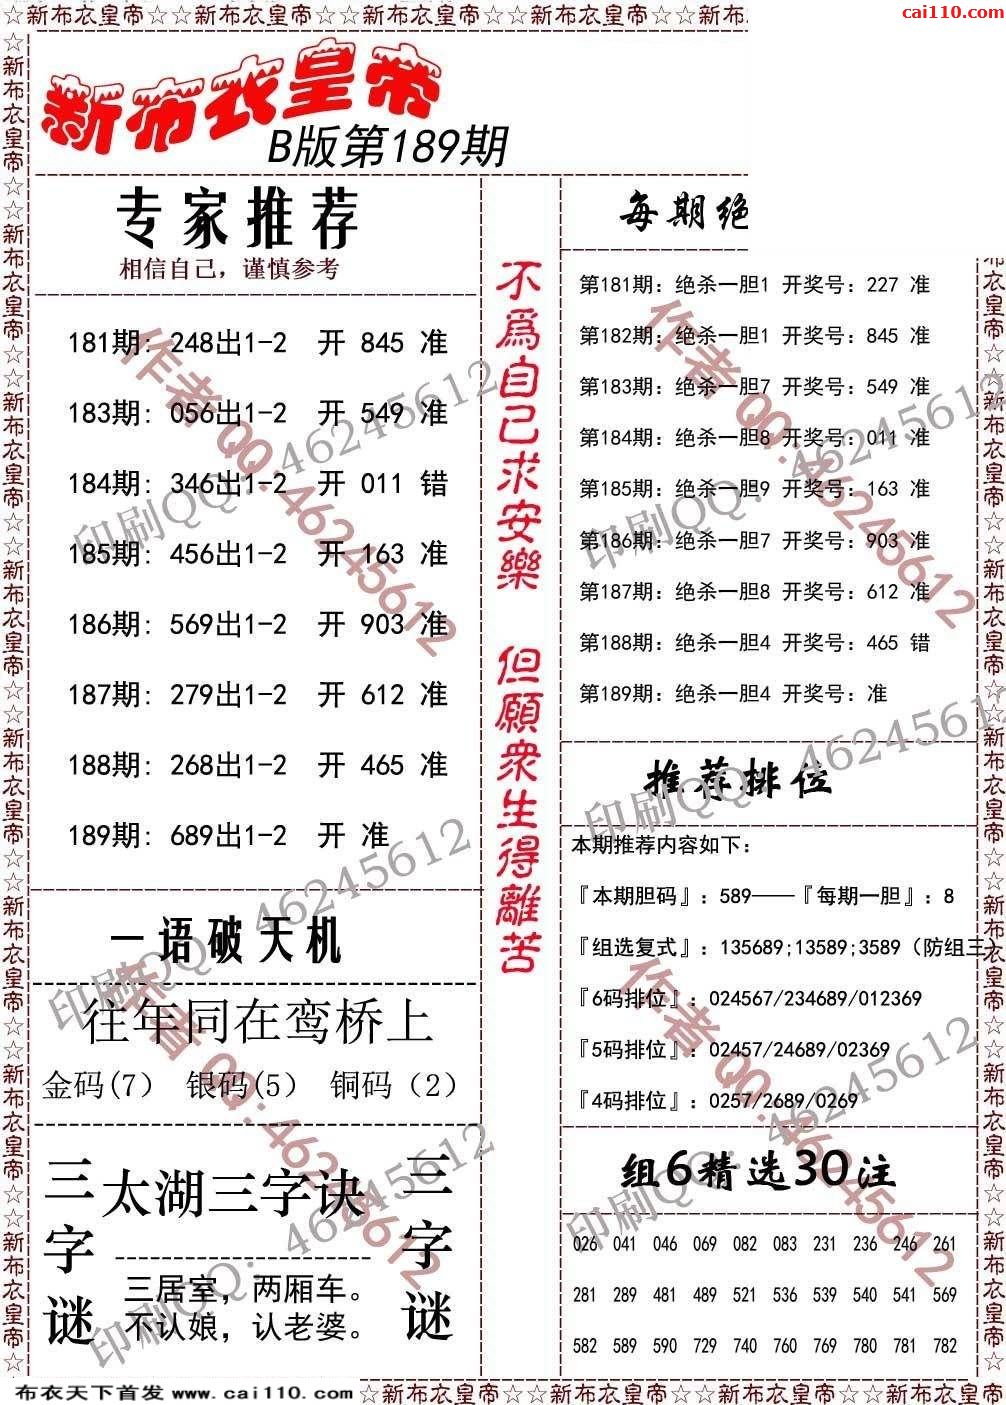 ☆新布衣皇帝☆☆新布衣皇帝☆☆新布衣皇帝☆☆新布衣皇帝☆☆新布
cai110.com
新布衣皇帝
B版第189期
专家推荐
相信自己，谨慎参考
181期: 248出1-2 开 845 准
183期: 056出1-2 开 549 准
184期: 346出1-2 开 011 错
185期: 456出1-2 开 163 准
186期: 569出1-2 开 903 准
187期: 279出1-2 开 612 准
188期: 268出1-2 开 465 准
189期: 689出1-2 开 准
一语破天机
往年同在鸾桥上
金码(7) 银码(5) 铜码（2）
三字谜
太湖三字诀
三居室，两厢车。
不认娘，认老婆。
三字谜
不爲自己求安樂 但願衆生得離苦
每期绝
第181期: 绝杀一胆1 开奖号: 227 准
第182期: 绝杀一胆1 开奖号: 845 准
第183期: 绝杀一胆7 开奖号: 549 准
第184期: 绝杀一胆8 开奖号: 011 准
第185期: 绝杀一胆9 开奖号: 163 准
第186期: 绝杀一胆7 开奖号: 903 准
第187期: 绝杀一胆8 开奖号: 612 准
第188期: 绝杀一胆4 开奖号: 465 错
第189期: 绝杀一胆4 开奖号: 准
推荐排位
本期推荐内容如下:
『本期胆码』: 589——『每期一胆』: 8
『组选复式』: 135689;13589;3589（防组三）
『6码排位』: 024567/234689/012369
『5码排位』: 02457/24689/02369
『4码排位』: 0257/2689/0269
组6精选30注
026 041 046 069 082 083 231 236 246 261
281 289 481 489 521 536 539 540 541 569
582 589 590 729 740 760 769 780 781 782
作者QQ:46245612
印刷QQ: 46245612
作者QQ:46245612
印刷QQ: 46245612
印刷QQ: 46245612
印刷QQ: 46245612
作者QQ:46245612
作者QQ:46245612
印刷QQ: 46245612
印刷QQ: 46245612
☆新布衣皇帝☆☆新布衣皇帝☆☆新布衣皇帝☆☆新布衣皇帝☆☆新布衣皇帝☆☆新布衣皇帝☆☆新布衣皇帝☆☆新布衣皇帝☆
布衣天下首发 www.cai110.com
☆新布衣皇帝☆☆新布衣皇帝☆☆新布衣皇帝☆☆新布衣皇帝☆